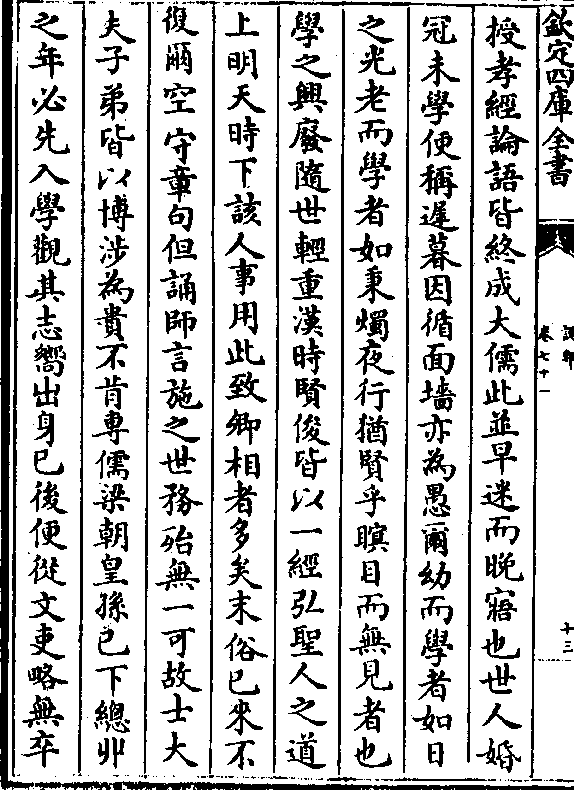 欽定四庫全書
卷七十一
十三
授孝經論語皆終成大儒此並早迷而晚寤也世人婚
冠未學便稱遲暮因循面墻亦為愚爾幼而學者如日
之光老而學者如秉燭夜行猶賢乎瞑目而無見者也
學之興廢隨世輕重漢時賢俊皆以一經弘聖人之道
上明天時下該人事用此致卿相者多矣末俗已來不
復爾空守章句但誦師言施之世務殆無一可故士大
夫子弟皆以博涉為貴不肯專儒梁朝皇孫已下總丱
之年必先入學觀其志嚮出身已後便從文吏略無卒